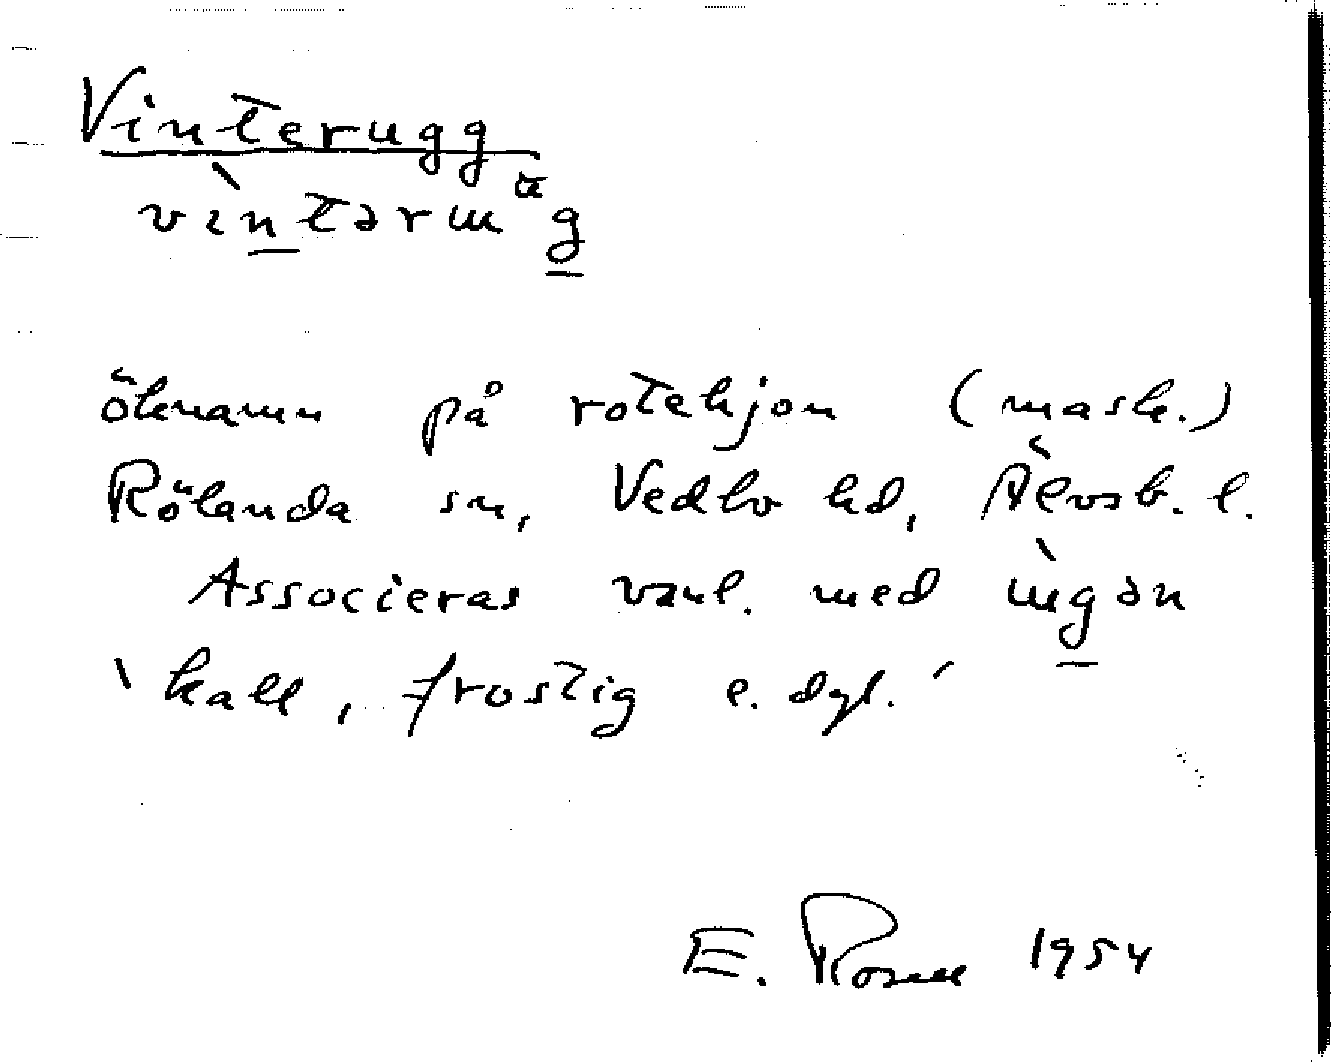 Vinterugg
vìntərɯg
öknamn på rotehjon (mask.)
Rölanda sn, Vedbo hd, Älvsb. l.
Associeras vanl. med ɯ̀gən
'kall, frostig e. dyl.'
E. Rosell 1954